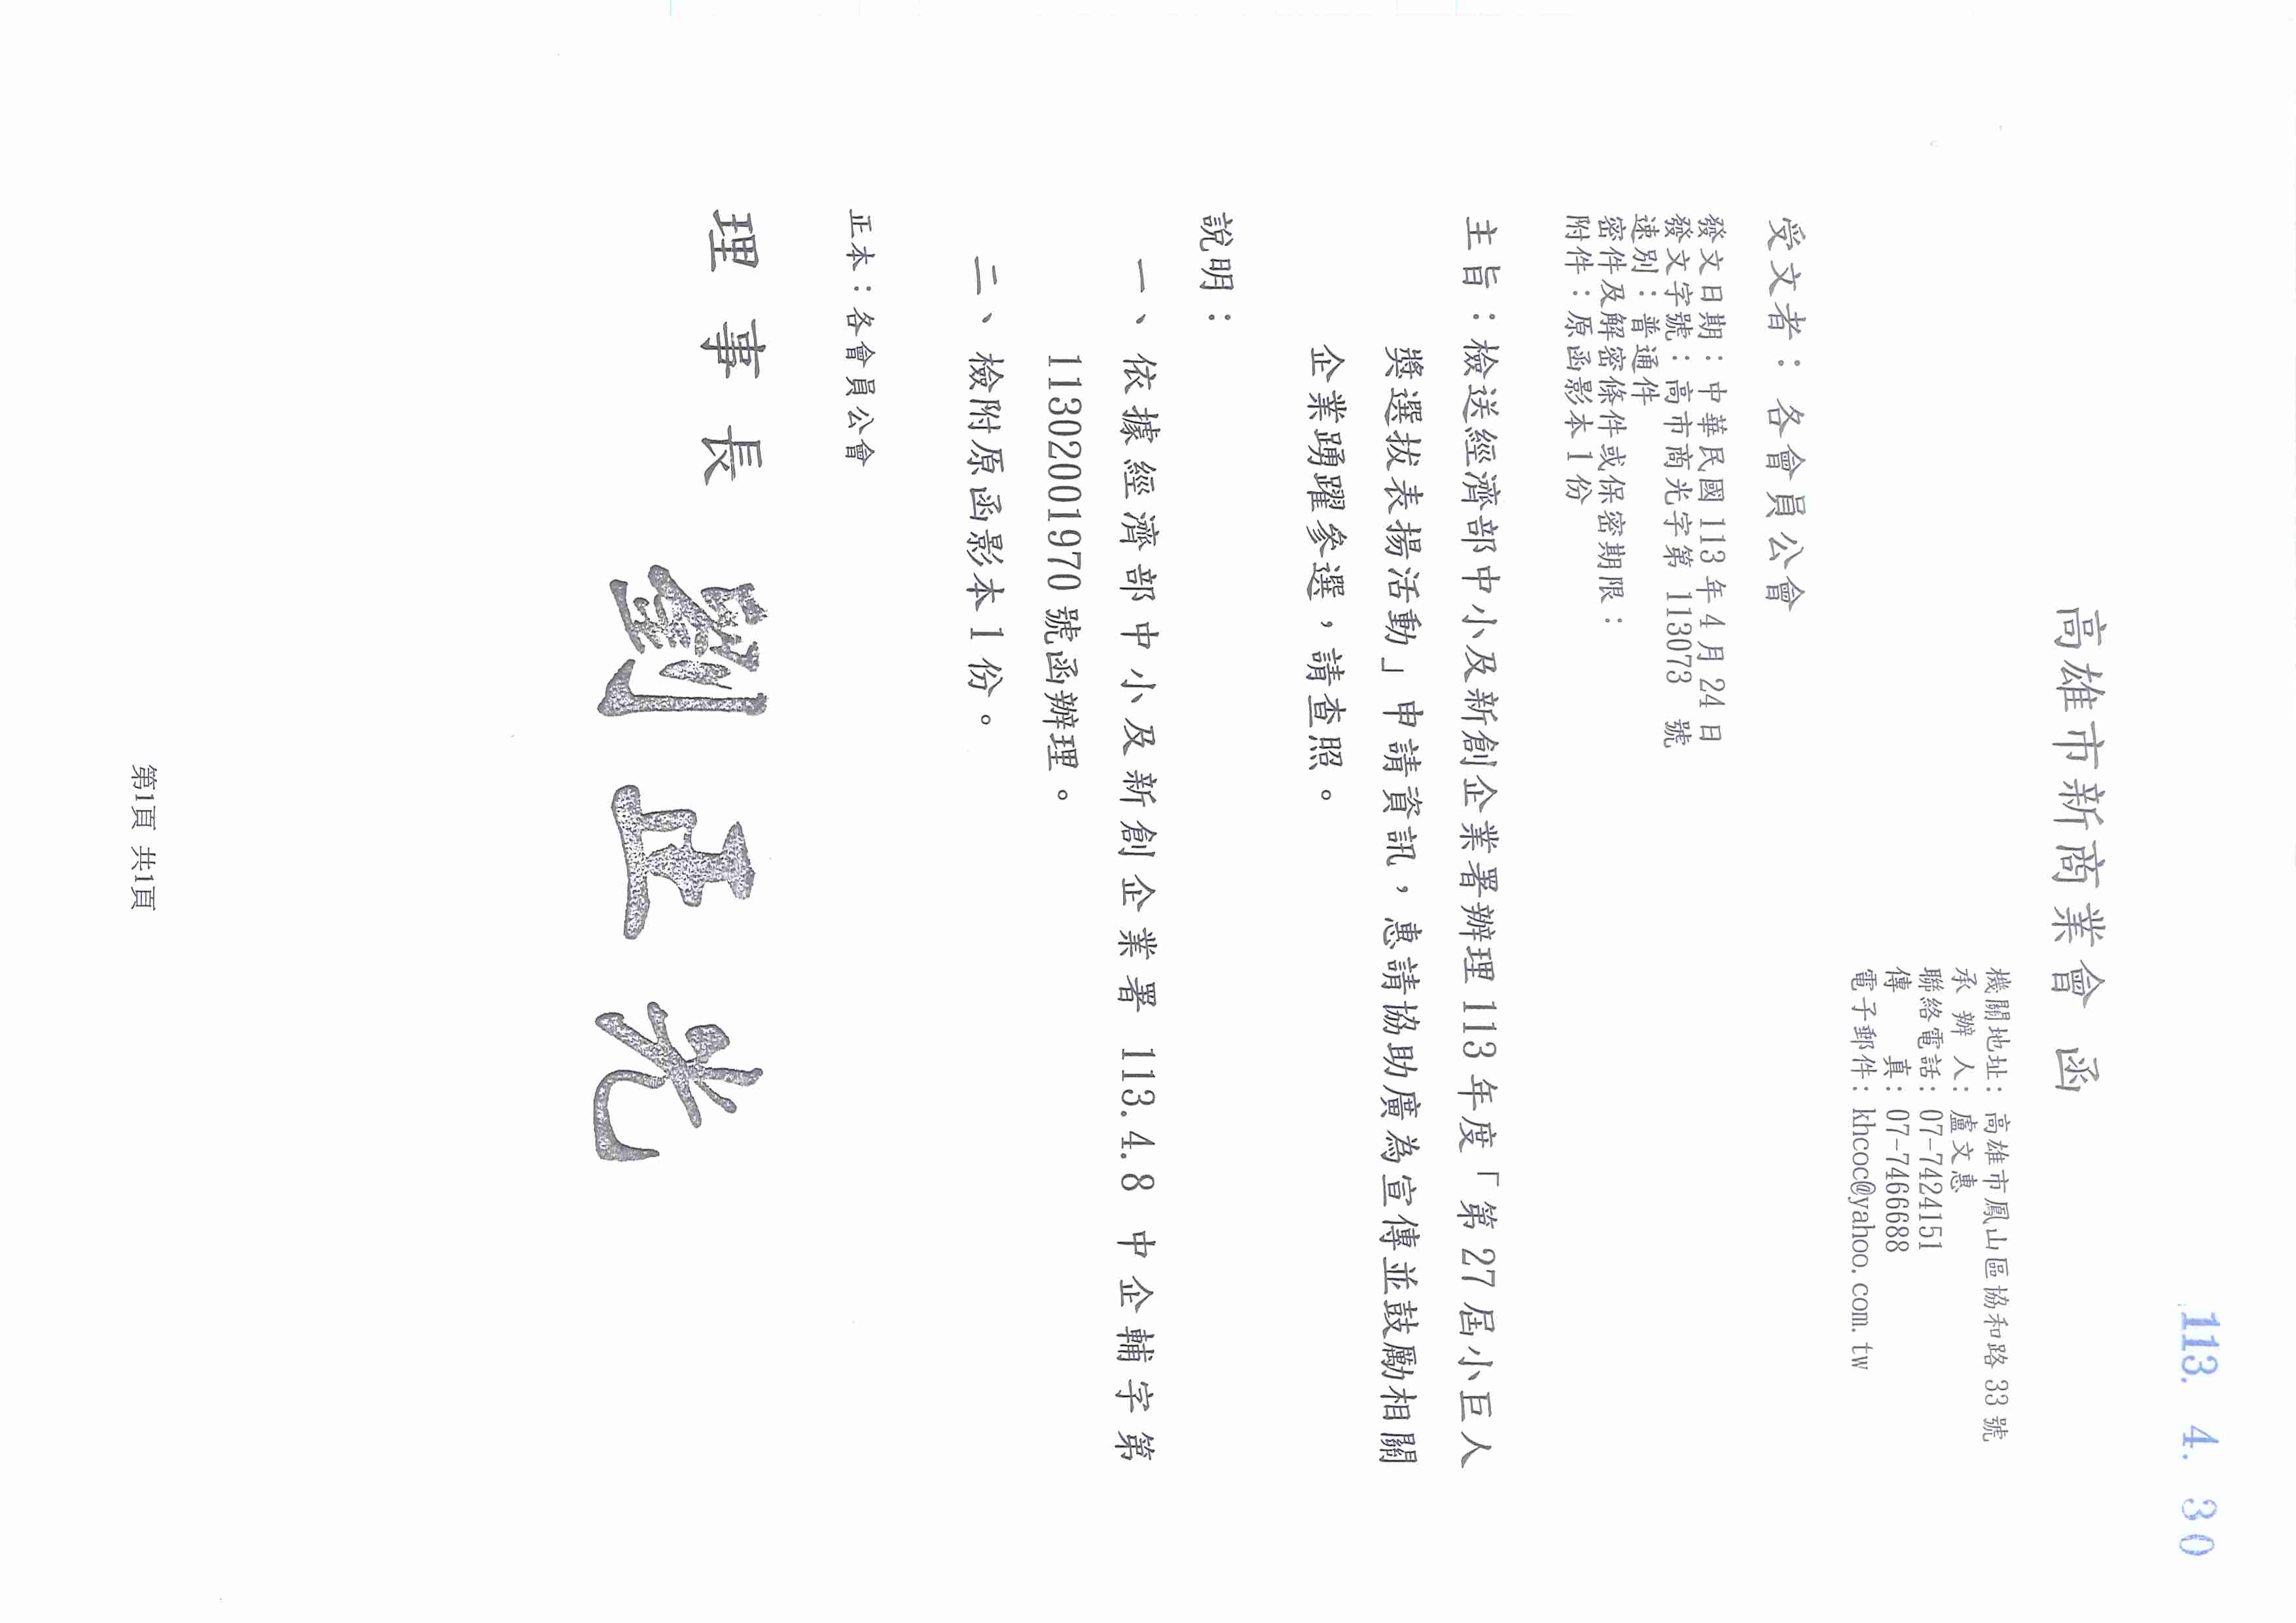 113. 4. 30
高雄市新商業會 函
機關地址: 高雄市鳳山區協和路 33 號
承 辦 人: 盧文惠
聯絡電話: 07-7424151
傳　　真: 07-7466688
電子郵件: khcoc@yahoo.com.tw
受文者：各會員公會
發文日期：中華民國 113 年 4 月 24 日
發文字號：高市商光字第 113073 號
速別：普通件
密件及解密條件或保密期限：
附件：原函影本 1 份
主旨：檢送經濟部中小及新創企業署辦理 113 年度「第 27 屆小巨人
獎選拔表揚活動」申請資訊，惠請協助廣為宣傳並鼓勵相關
企業踴躍參選，請查照。
說明：
一、依據經濟部中小及新創企業署 113.4.8 中企輔字第
11302001970 號函辦理。
二、檢附原函影本 1 份。
正本：各會員公會
理事長 劉正光
第1頁 共1頁